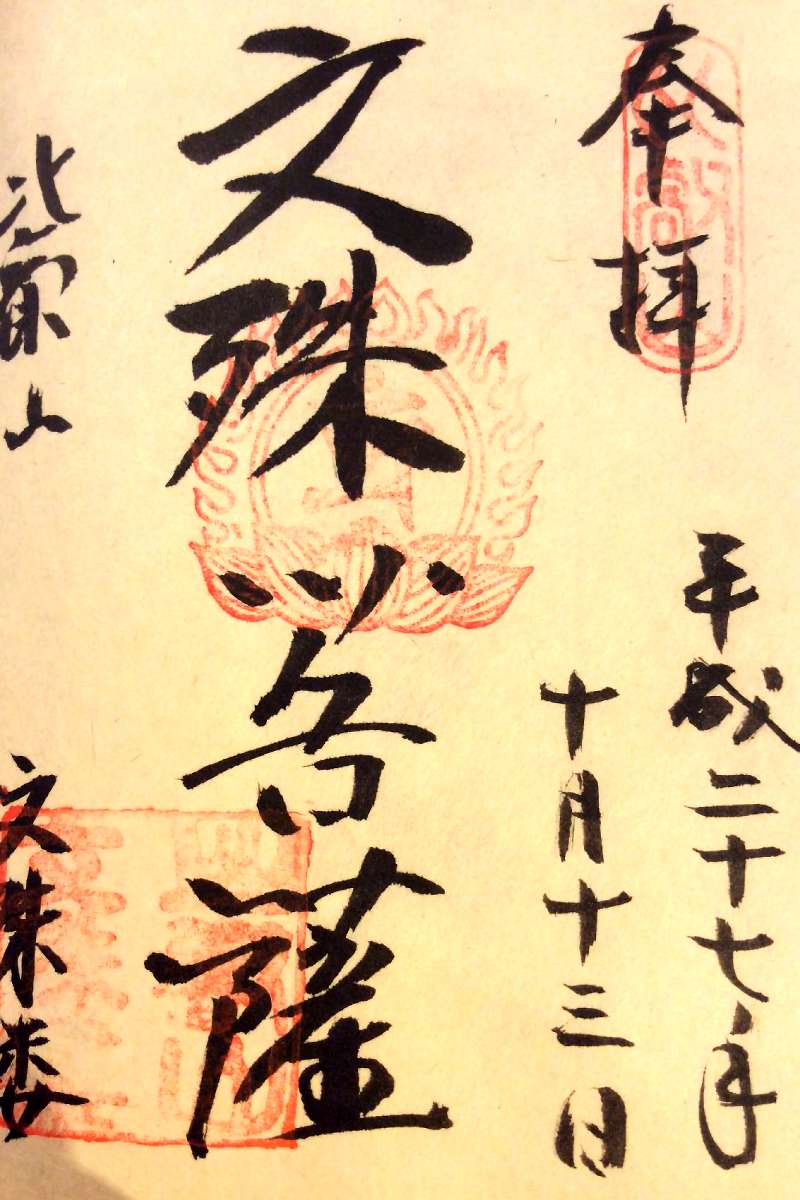 奉拝
平成二十七年
十月十三日
文殊菩薩
比叡山
文殊楼